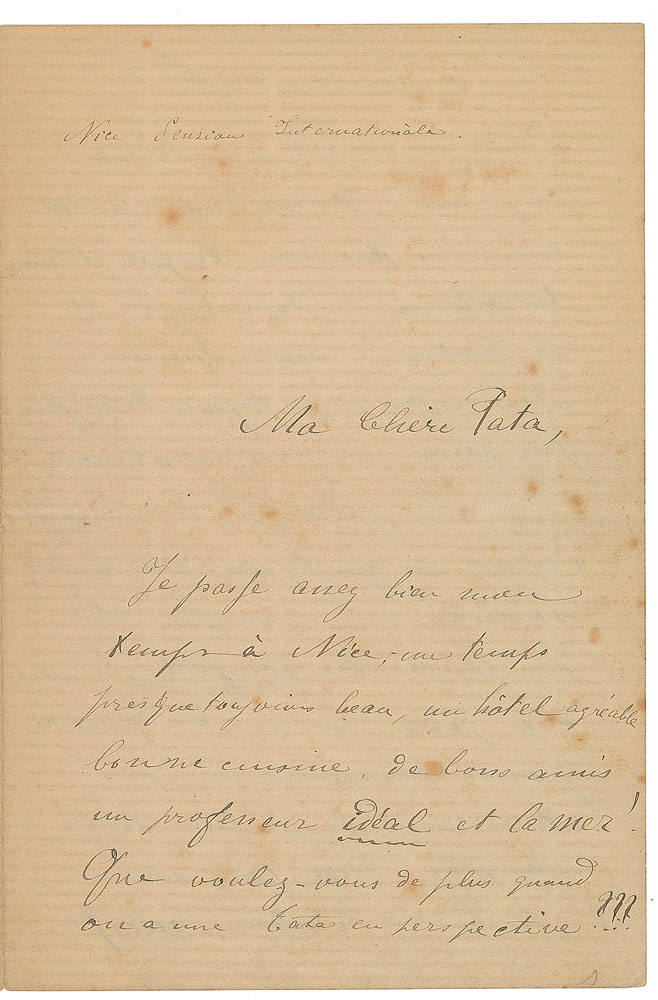 Nice Pension Internationale.
Ma Chère Tata,
Je passe assez bien mon
temps à Nice, un temps
presque toujours beau, un hôtel agréable
bonne cuisine, de bons amis
un professeur idéal et la mer!
Que voulez-vous de plus quand
on a une Tata en perspective ???